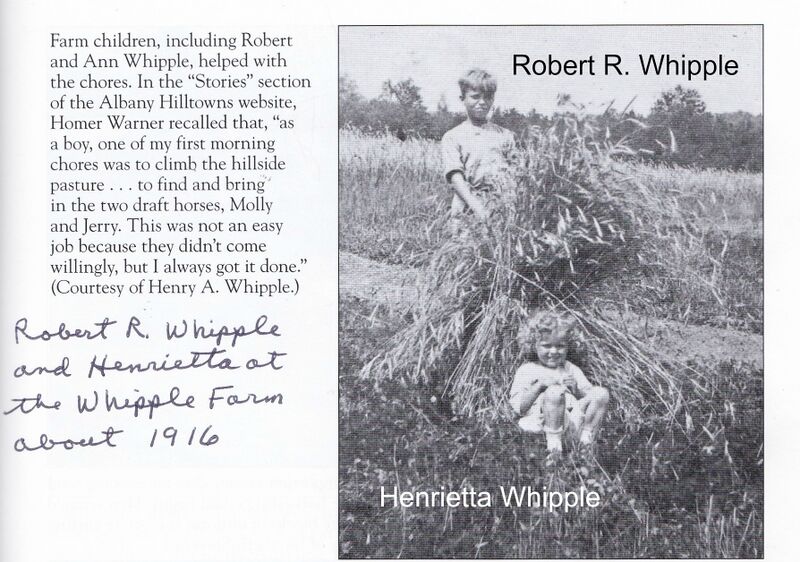 Farm children, including Robert
and Ann Whipple, helped with
the chores. In the “Stories” section
of the Albany Hilltowns website,
Homer Warner recalled that, “as
a boy, one of my first morning
chores was to climb the hillside
pasture . . . to find and bring
in the two draft horses, Molly
and Jerry. This was not an easy
job because they didn’t come
willingly, but I always got it done.”
(Courtesy of Henry A. Whipple.)
Robert R. Whipple
and Henrietta at
the Whipple Farm
about 1916
Robert R. Whipple
Henrietta Whipple